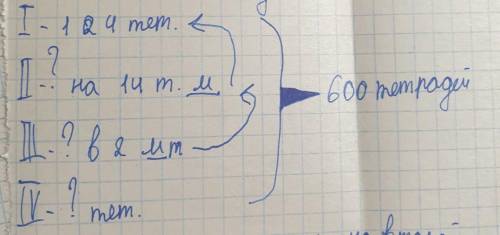 I - 124 тет.
II - ? на 14 т. м.
III - ? в 2 м т
IV - ? тет.
600 тетрадей